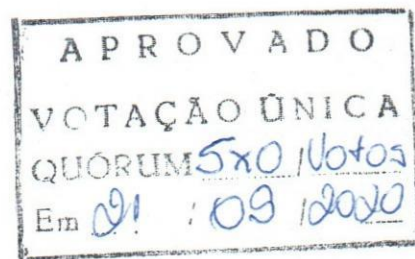 APROVADO
VOTAÇÃO ÚNICA
QUÓRUM 5x0 / Votos
Em 21 : 09 / 2020